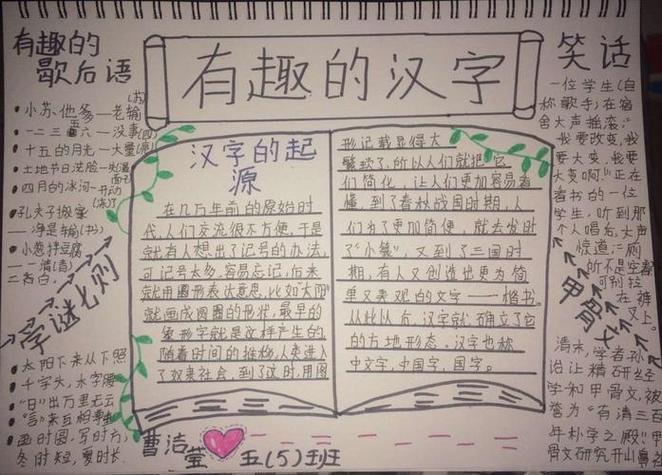 有趣的汉字
有趣的
歇后语
小苏他爹—老输
(苏)
一二三五六—没事(四)
十五的月光—大量(亮)
土地节日洗脸—失(湿)
面子
四月的冰河—开动
(冻)了
孔夫子搬家
—净是输(书)
小葱拌豆腐
—一清(青)
二白
字谜七则
太阳下来从下照
千字头,木字腰
"日"出万里无云
画时圆,写时方,
冬时短,夏时长
汉字的起
源
在几万年前的原始时
代,人们交流很不方便,于是
就有人想出了记号的办法,
可记号太多,容易忘记,后来
就用图形表达意思,比如"太阳"
就画成圆圈的形状,最早的
象形字就是这样产生的
随着时间的推移,人类进入
了奴隶社会,到了这时,用图
形记载显得太
繁琐了,所以人们就把它
们简化,让人们更加容易看
懂,到了春秋战国时期,人
们为了更加简便,就去发明
了"小篆",又到了三国时
期,有人又创造出更为简
单又美观的文字——楷书。
从此以后,汉字就确立了它
的方块形态。汉字也称
中文字,中国字,国字。
曹洁
莹
五(5)班
笑话
一位学生(自
称歌手)在宿
舍大声摇滚:"
我要改变,我
要大变,我要
大变啊!"正在
看书的一位
学生,听到那
个人唱后,大声
惊道:"厕
所不是空着
可别拉
在裤
叉上。
甲骨文
清末,学者孙
诒让精研经
学和甲骨文,被
誉为"有清三百
年朴学之殿"甲
骨文研究开山鼻